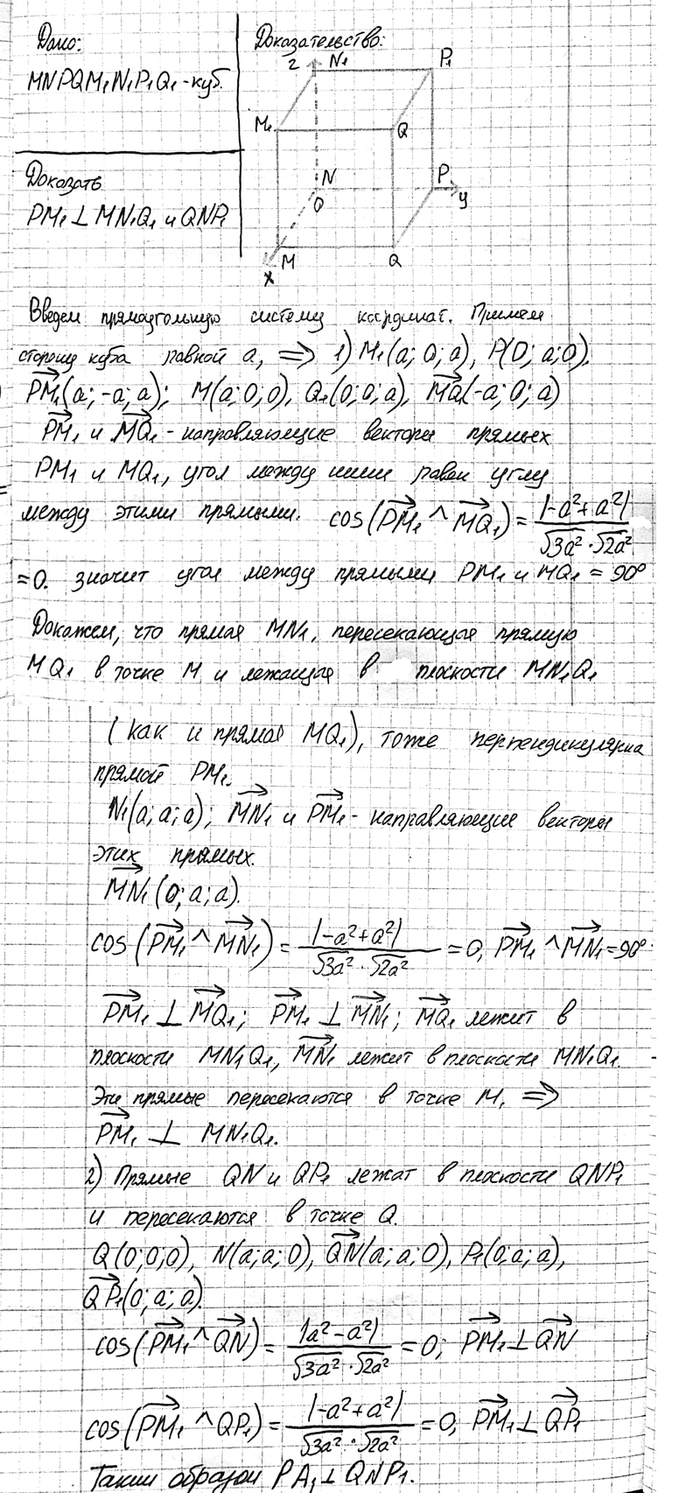 Дано:
MNPQM₁N₁P₁Q₁ - куб.
Доказать
PM₁ ⊥ MN₁Q₁ и QNP₁
Доказательство:
z N₁ P₁
M₁ Q
N P
O y
x M Q
Введем прямоугольную систему координат. Примем
сторону куба равной a, ⇒ 1) M₁(a; 0; a), P(0; a; 0),
PM₁(a; -a; a); M(a; 0; 0), Q₁(0; 0; a), MQ₁(-a; 0; a)
PM₁ и MQ₁ - направляющие векторы прямых
PM₁ и MQ₁, угол между ними равен углу
между этими прямыми. cos(PM₁ ^ MQ₁) = |-a²+a²| / √3a² · √2a²
= 0. значит угол между прямыми PM₁ и MQ₁ = 90°
Докажем, что прямая MN₁, пересекающая прямую
MQ₁ в точке M и лежащая в плоскости MN₁Q₁
(как и прямая MQ₁), тоже перпендикулярна
прямой PM₁.
N₁(a; a; a); MN₁ и PM₁ - направляющие векторы
этих прямых.
MN₁(0; a; a).
cos(PM₁ ^ MN₁) = |-a²+a²| / √3a² · √2a² = 0, PM₁ ^ MN₁ = 90°
PM₁ ⊥ MQ₁; PM₁ ⊥ MN₁; MQ₁ лежит в
плоскости MN₁Q₁, MN₁ лежит в плоскости MN₁Q₁.
Эти прямые пересекаются в точке M, ⇒
PM₁ ⊥ MN₁Q₁.
2) Прямые QN и QP₁ лежат в плоскости QNP₁
и пересекаются в точке Q.
Q(0; 0; 0), N(a; a; 0), QN(a; a; 0), P₁(0; a; a),
QP₁(0; a; a).
cos(PM₁ ^ QN) = |a²-a²| / √3a² · √2a² = 0; PM₁ ⊥ QN
cos(PM₁ ^ QP₁) = |-a²+a²| / √3a² · √2a² = 0, PM₁ ⊥ QP₁
Таким образом PA₁ ⊥ QNP₁.